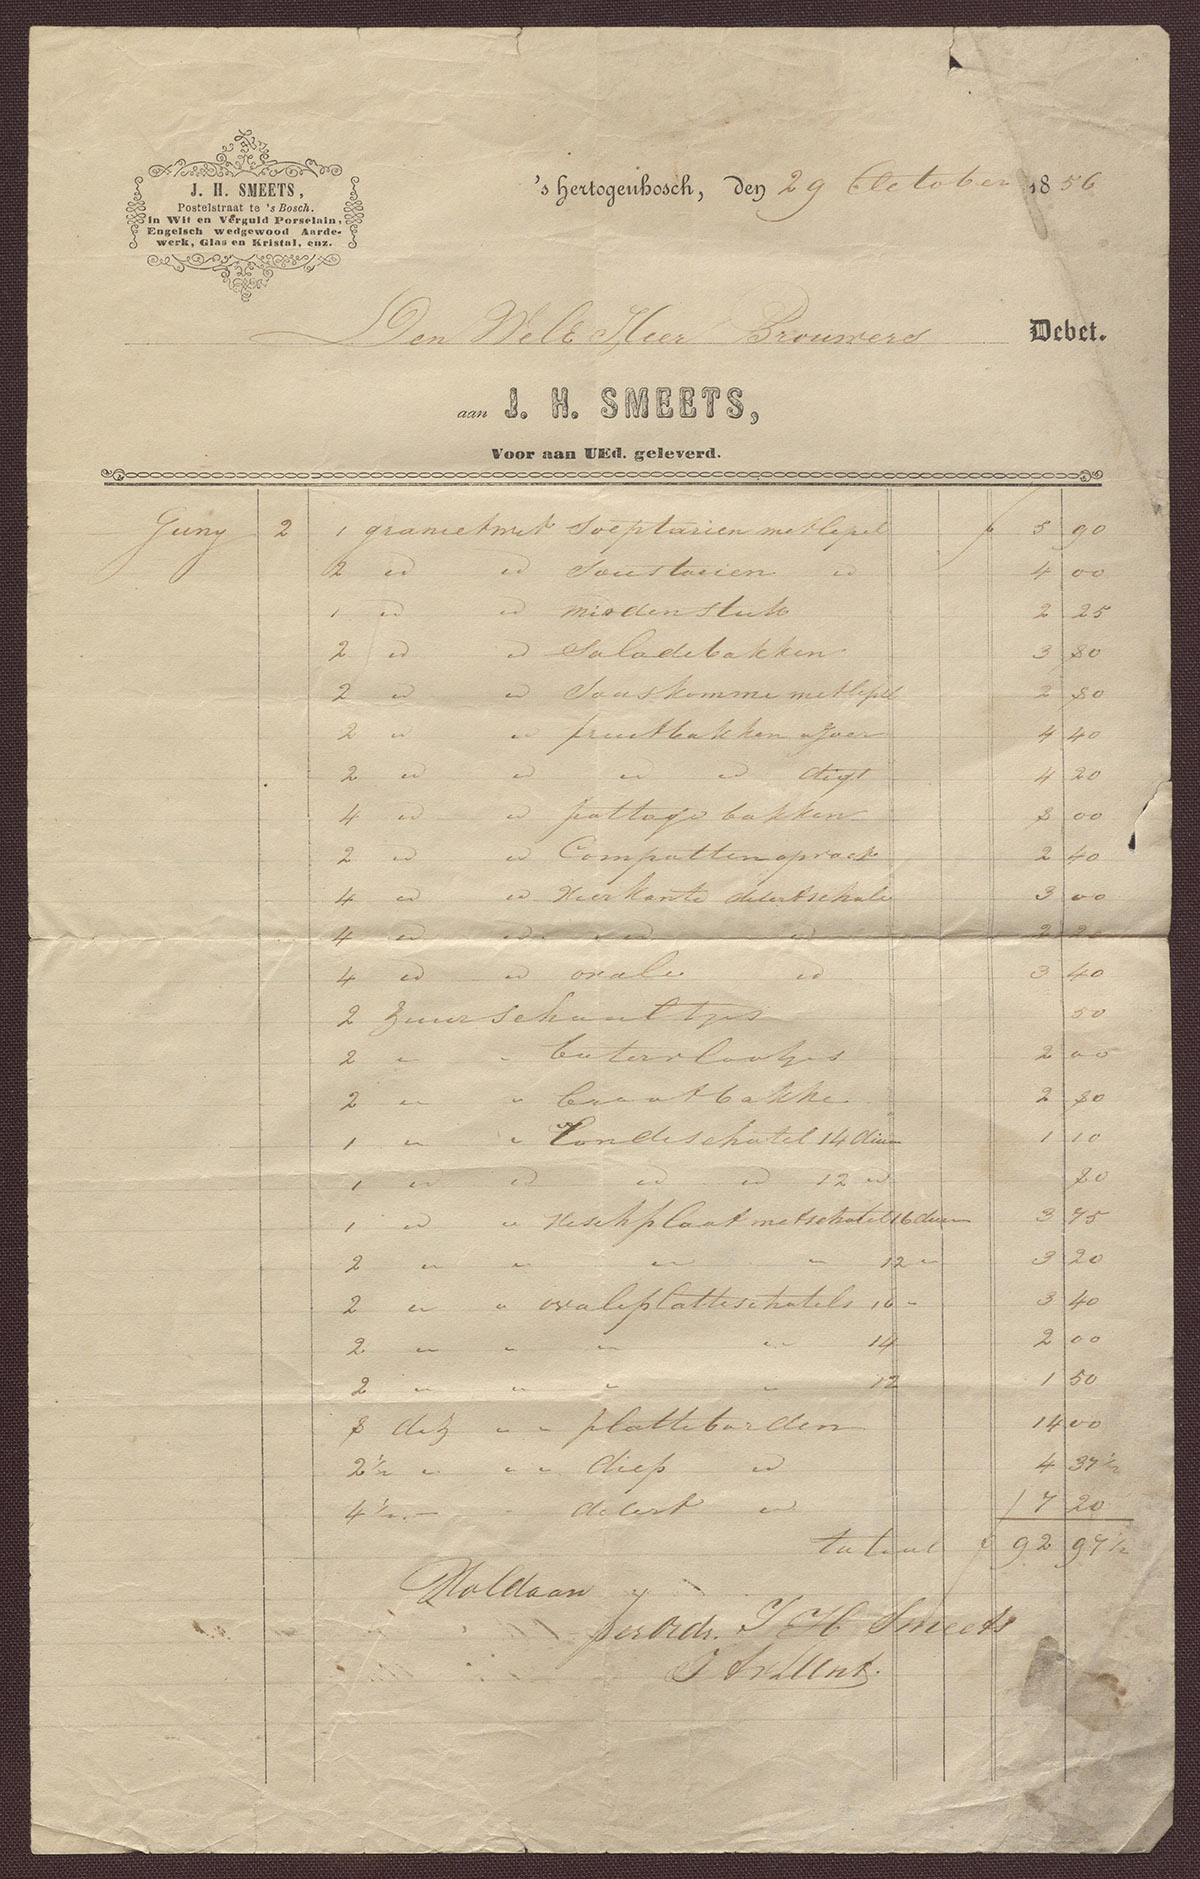 J. H. SMEETS,
Postelstraat te 's Bosch.
in Wit en Verguld Porselain,
Engelsch wedgewood Aarde-
werk, Glas en Kristal, enz.
's Hertogenbosch, den 29 October 1856
Den WelE Heer Brouwers Debet.
aan J. H. SMEETS,
Voor aan UEd. geleverd.
Juny 2 1 granietwit Soepterien met lepel f 5 90
2 id id Sausterien id 4 00
1 id id midden stuk 2 25
2 id id Saladebakken 3 80
2 id id Sauskomme met lepel 2 80
2 id id fruitbakken ajoer 4 40
2 id id id id digt 4 20
4 id id pottage bakken 8 00
2 id id 2 40
4 id id vierkante desertschale 3 00
4 id id id id 2 20
4 id id ovale id 3 40
2 Zuurschaaltjes 50
2 " " botervlootjes 2 00
2 " " braatbakke 2 80
1 " " Rondeschotel 14 duim 1 10
1 id id id id 12 id 80
1 id " Vischplaat met schotel 16 duim 3 75
2 " " " " 12 " 3 20
2 " " ovale platte schotels 16 " 3 40
2 " " " " 14 2 00
2 " " " " 12 1 50
8 dez " " platteborden 14 00
2 1/2 " " " diep id 4 37 1/2
4 1/2 " " desert id 7 20
totaal f 92 97 1/2
Voldaan
per Ordr. J H Smeets